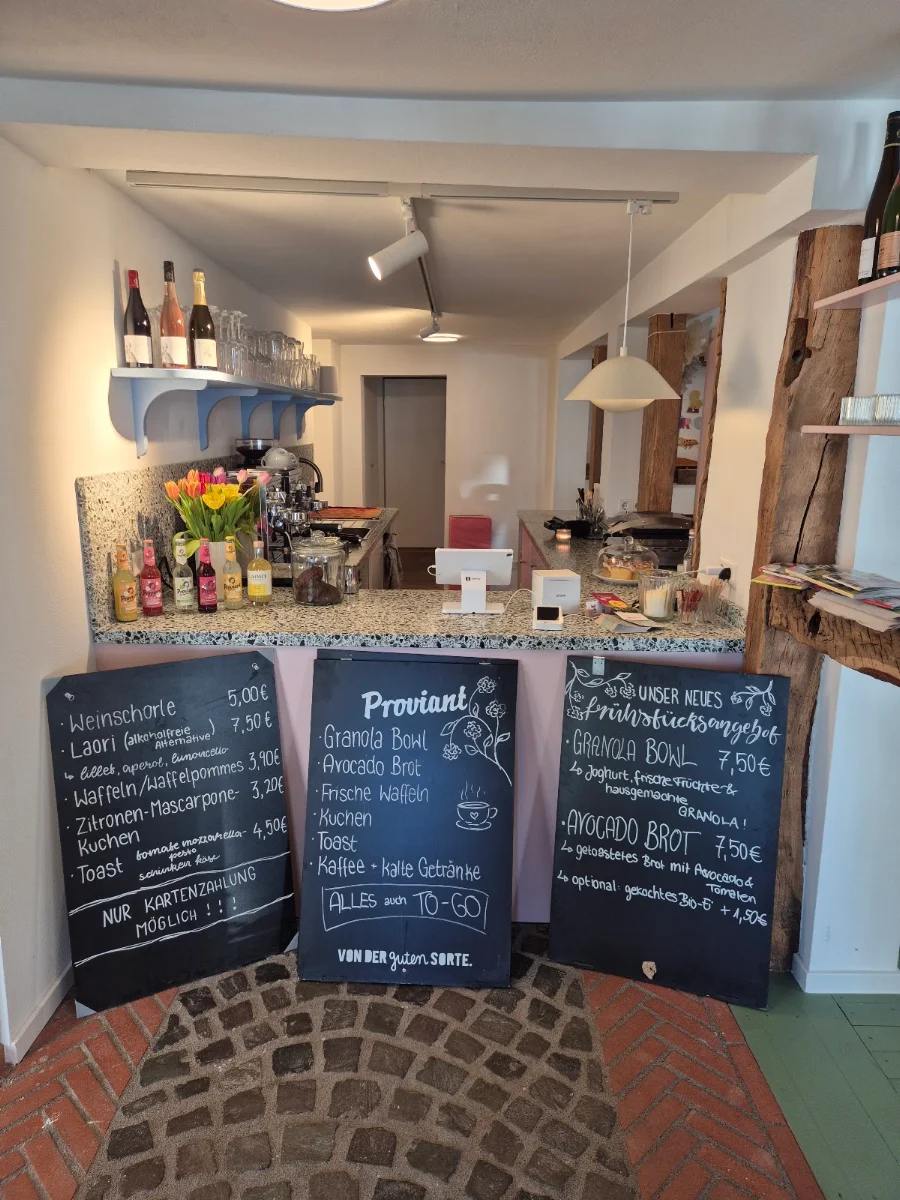 Weinschorle 5,00€
· Laori (alkoholfreie Alternative) 7,50€
↳ lillet, aperol, limoncello
· Waffeln/Waffelpommes 3,90€
· Zitronen-Mascarpone- 3,20€
Kuchen
· Toast tomate mozzarella 4,50€
pesto
schinken käse
NUR KARTENZAHLUNG
MÖGLICH!!!
Proviant
· Granola Bowl
· Avocado Brot
· Frische Waffeln
· Kuchen
Toast
· Kaffee + kalte Getränke
ALLES auch TO-GO
VON DER guten SORTE.
UNSER NEUES
Frühstücksangebot
· GRANOLA BOWL 7,50€
↳ Joghurt, frische Früchte &
hausgemachte
GRANOLA!
· AVOCADO BROT 7,50€
↳ getoastetes Brot mit Avocado &
Tomaten
↳ optional: gekochtes Bio-Ei + 1,50€